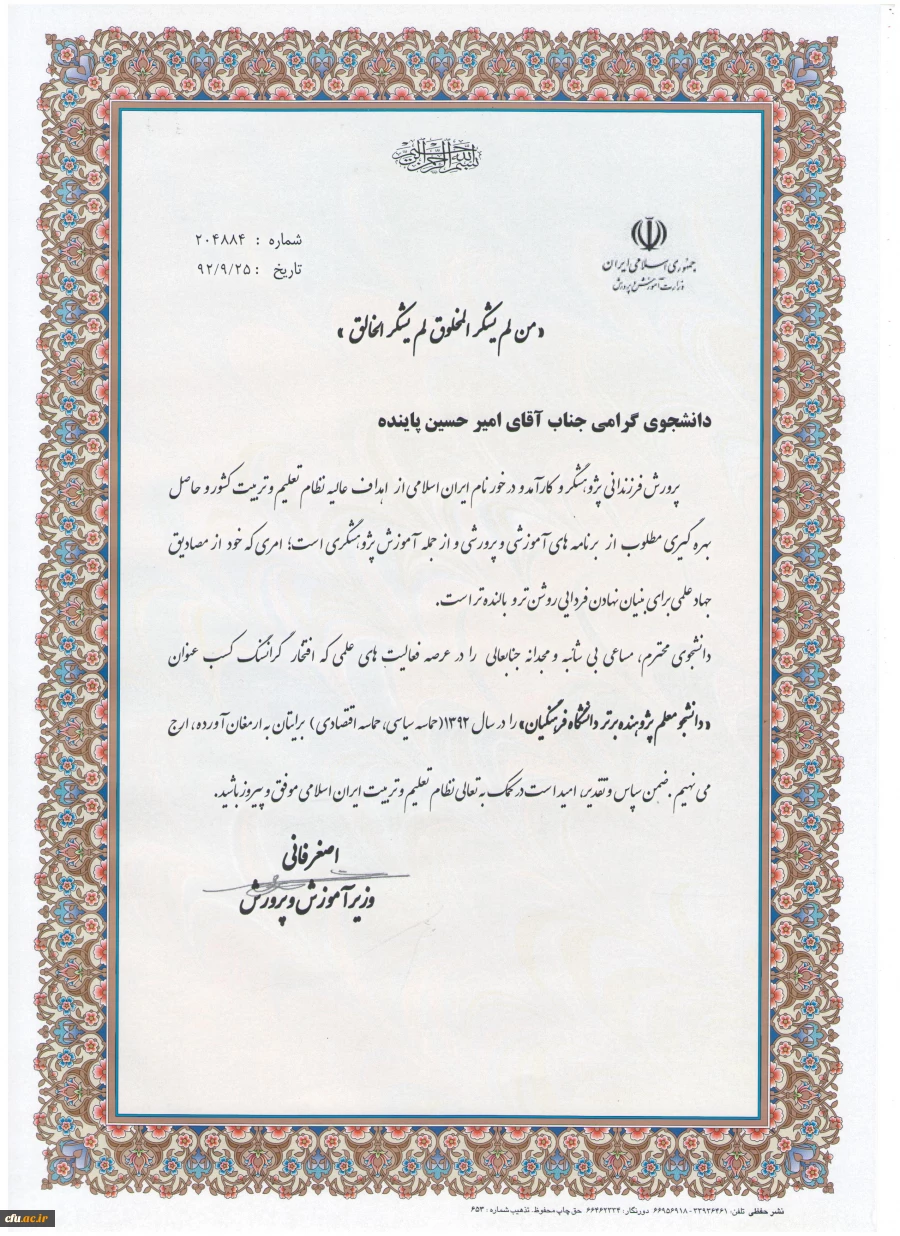 بسم الله الرحمن الرحیم
جمهوری اسلامی ایران
وزارت آموزش و پرورش
شماره : ۲۰۴۸۸۴
تاریخ : ۹۲/۹/۲۵
«من لم یشکر المخلوق لم یشکر الخالق»
دانشجوی گرامی جناب آقای امیر حسین پاینده
پرورش فرزندانی پژوهشگر و کارآمد و درخور نام ایران اسلامی از اهداف عالیه نظام تعلیم و تربیت کشور و حاصل
بهره گیری مطلوب از برنامه های آموزشی و پرورشی و از جمله آموزش پژوهشگری است؛ امری که خود از مصادیق
جهاد علمی برای بنیان نهادن فردایی روشن تر و بالنده تر است.
دانشجوی محترم، مساعی بی شائبه و مجدانه جنابعالی را در عرصه فعالیت های علمی که افتخار گرانسنگ کسب عنوان
«دانشجو معلم پژوهنده برتر دانشگاه فرهنگیان» را در سال ۱۳۹۲(حماسه سیاسی، حماسه اقتصادی) برایتان به ارمغان آورده، ارج
می نهیم. ضمن سپاس و تقدیر، امید است در کمک به تعالی نظام تعلیم و تربیت ایران اسلامی موفق و پیروز باشید.
اصغر فانی
وزیر آموزش و پرورش
نشر حفظی تلفن: ۳۳۹۳۶۴۶۱ - ۶۶۹۵۶۹۱۸ دورنگار: ۶۶۴۶۲۳۳۴ حق چاپ محفوظ. تذهیب شماره: ۶۵۳
cfu.ac.ir